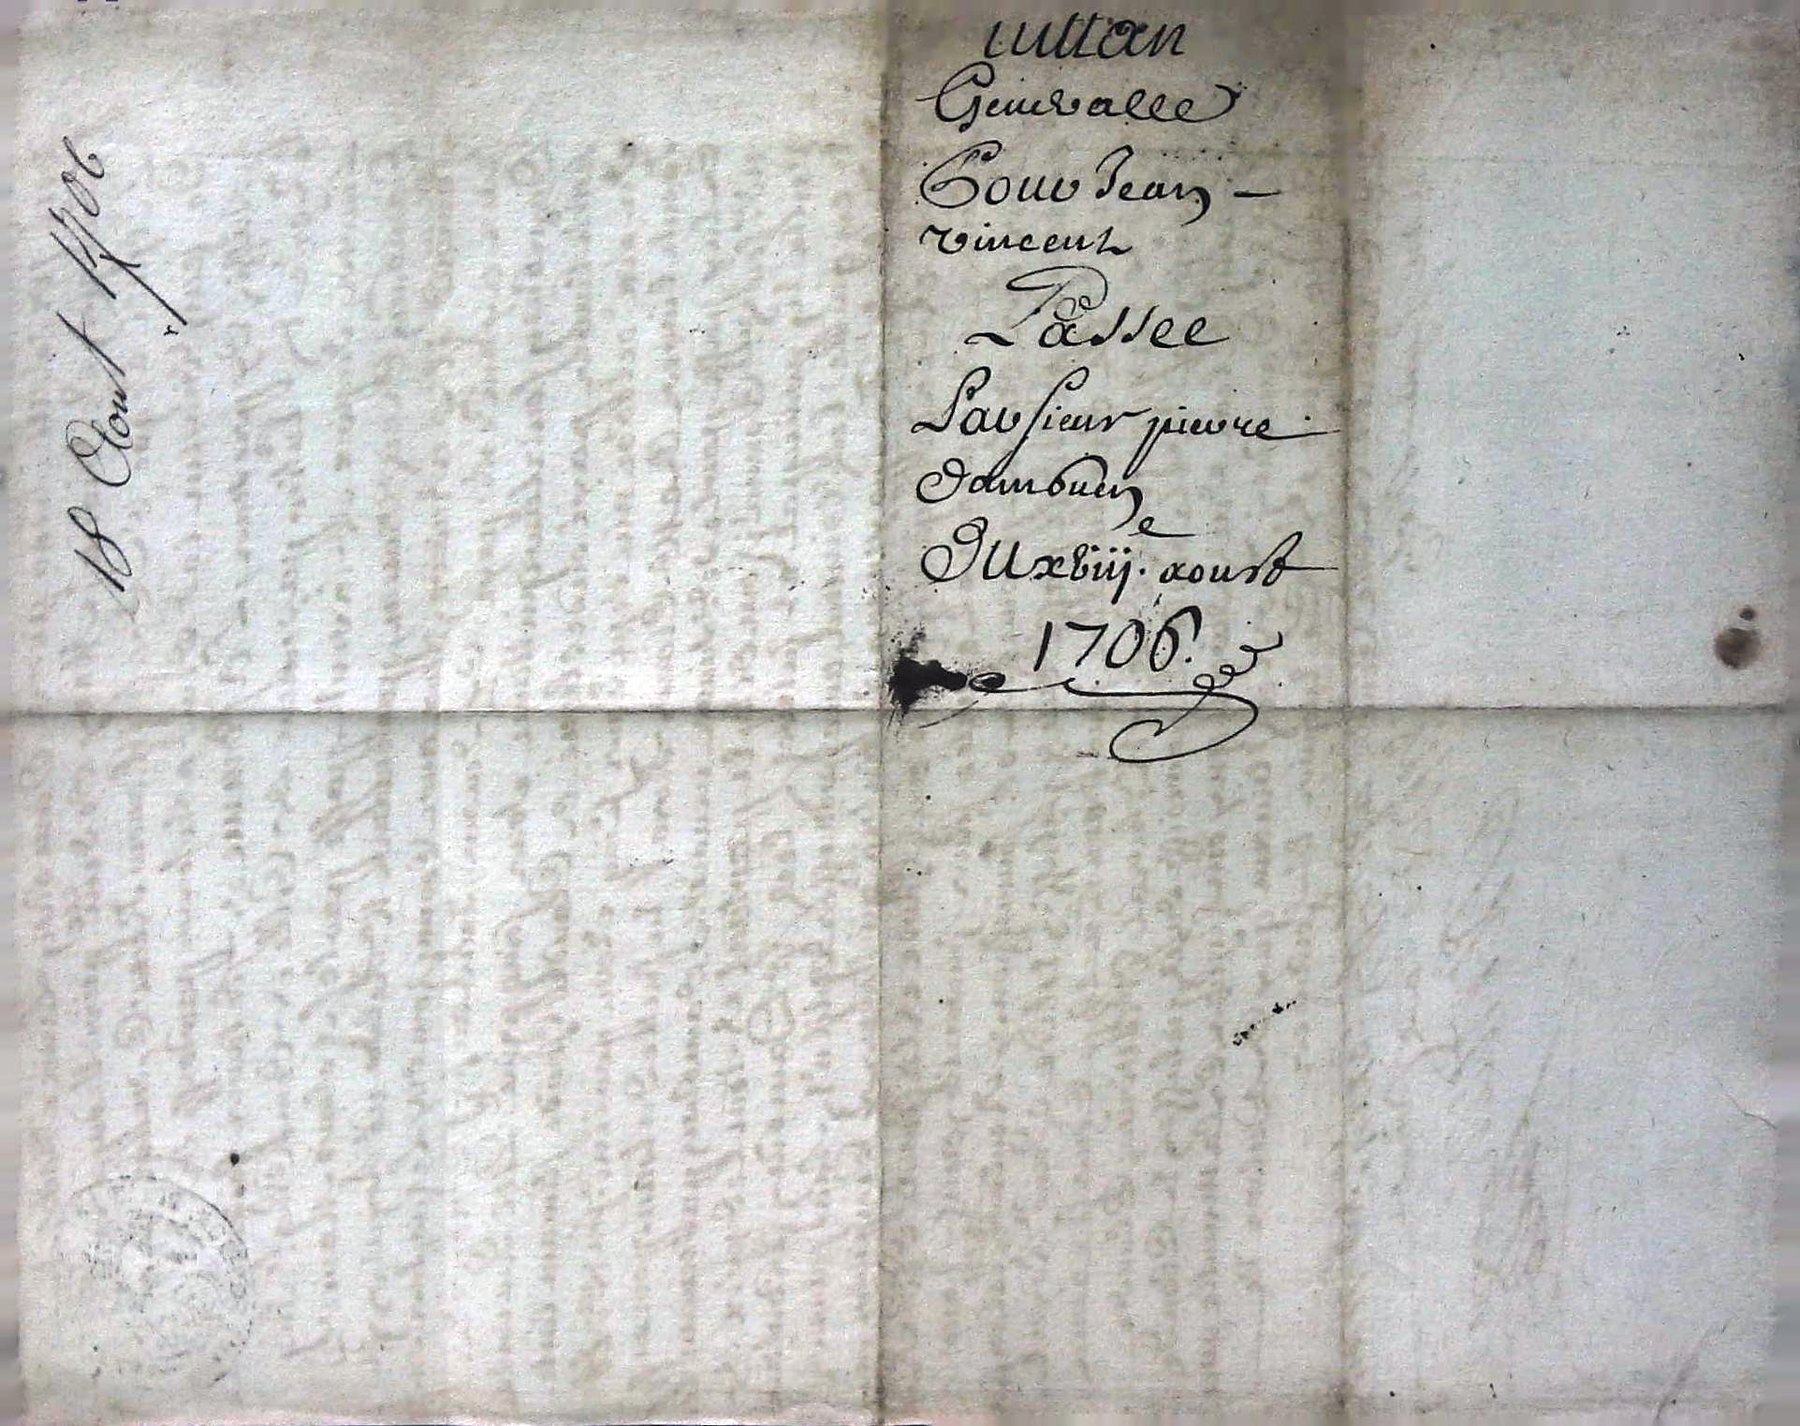 18 Aout 1706
quittan
Generalle
Pour Jean -
vincent
Passee
Par sieur pierre
dambuen
Du xviije. aoust
1706.